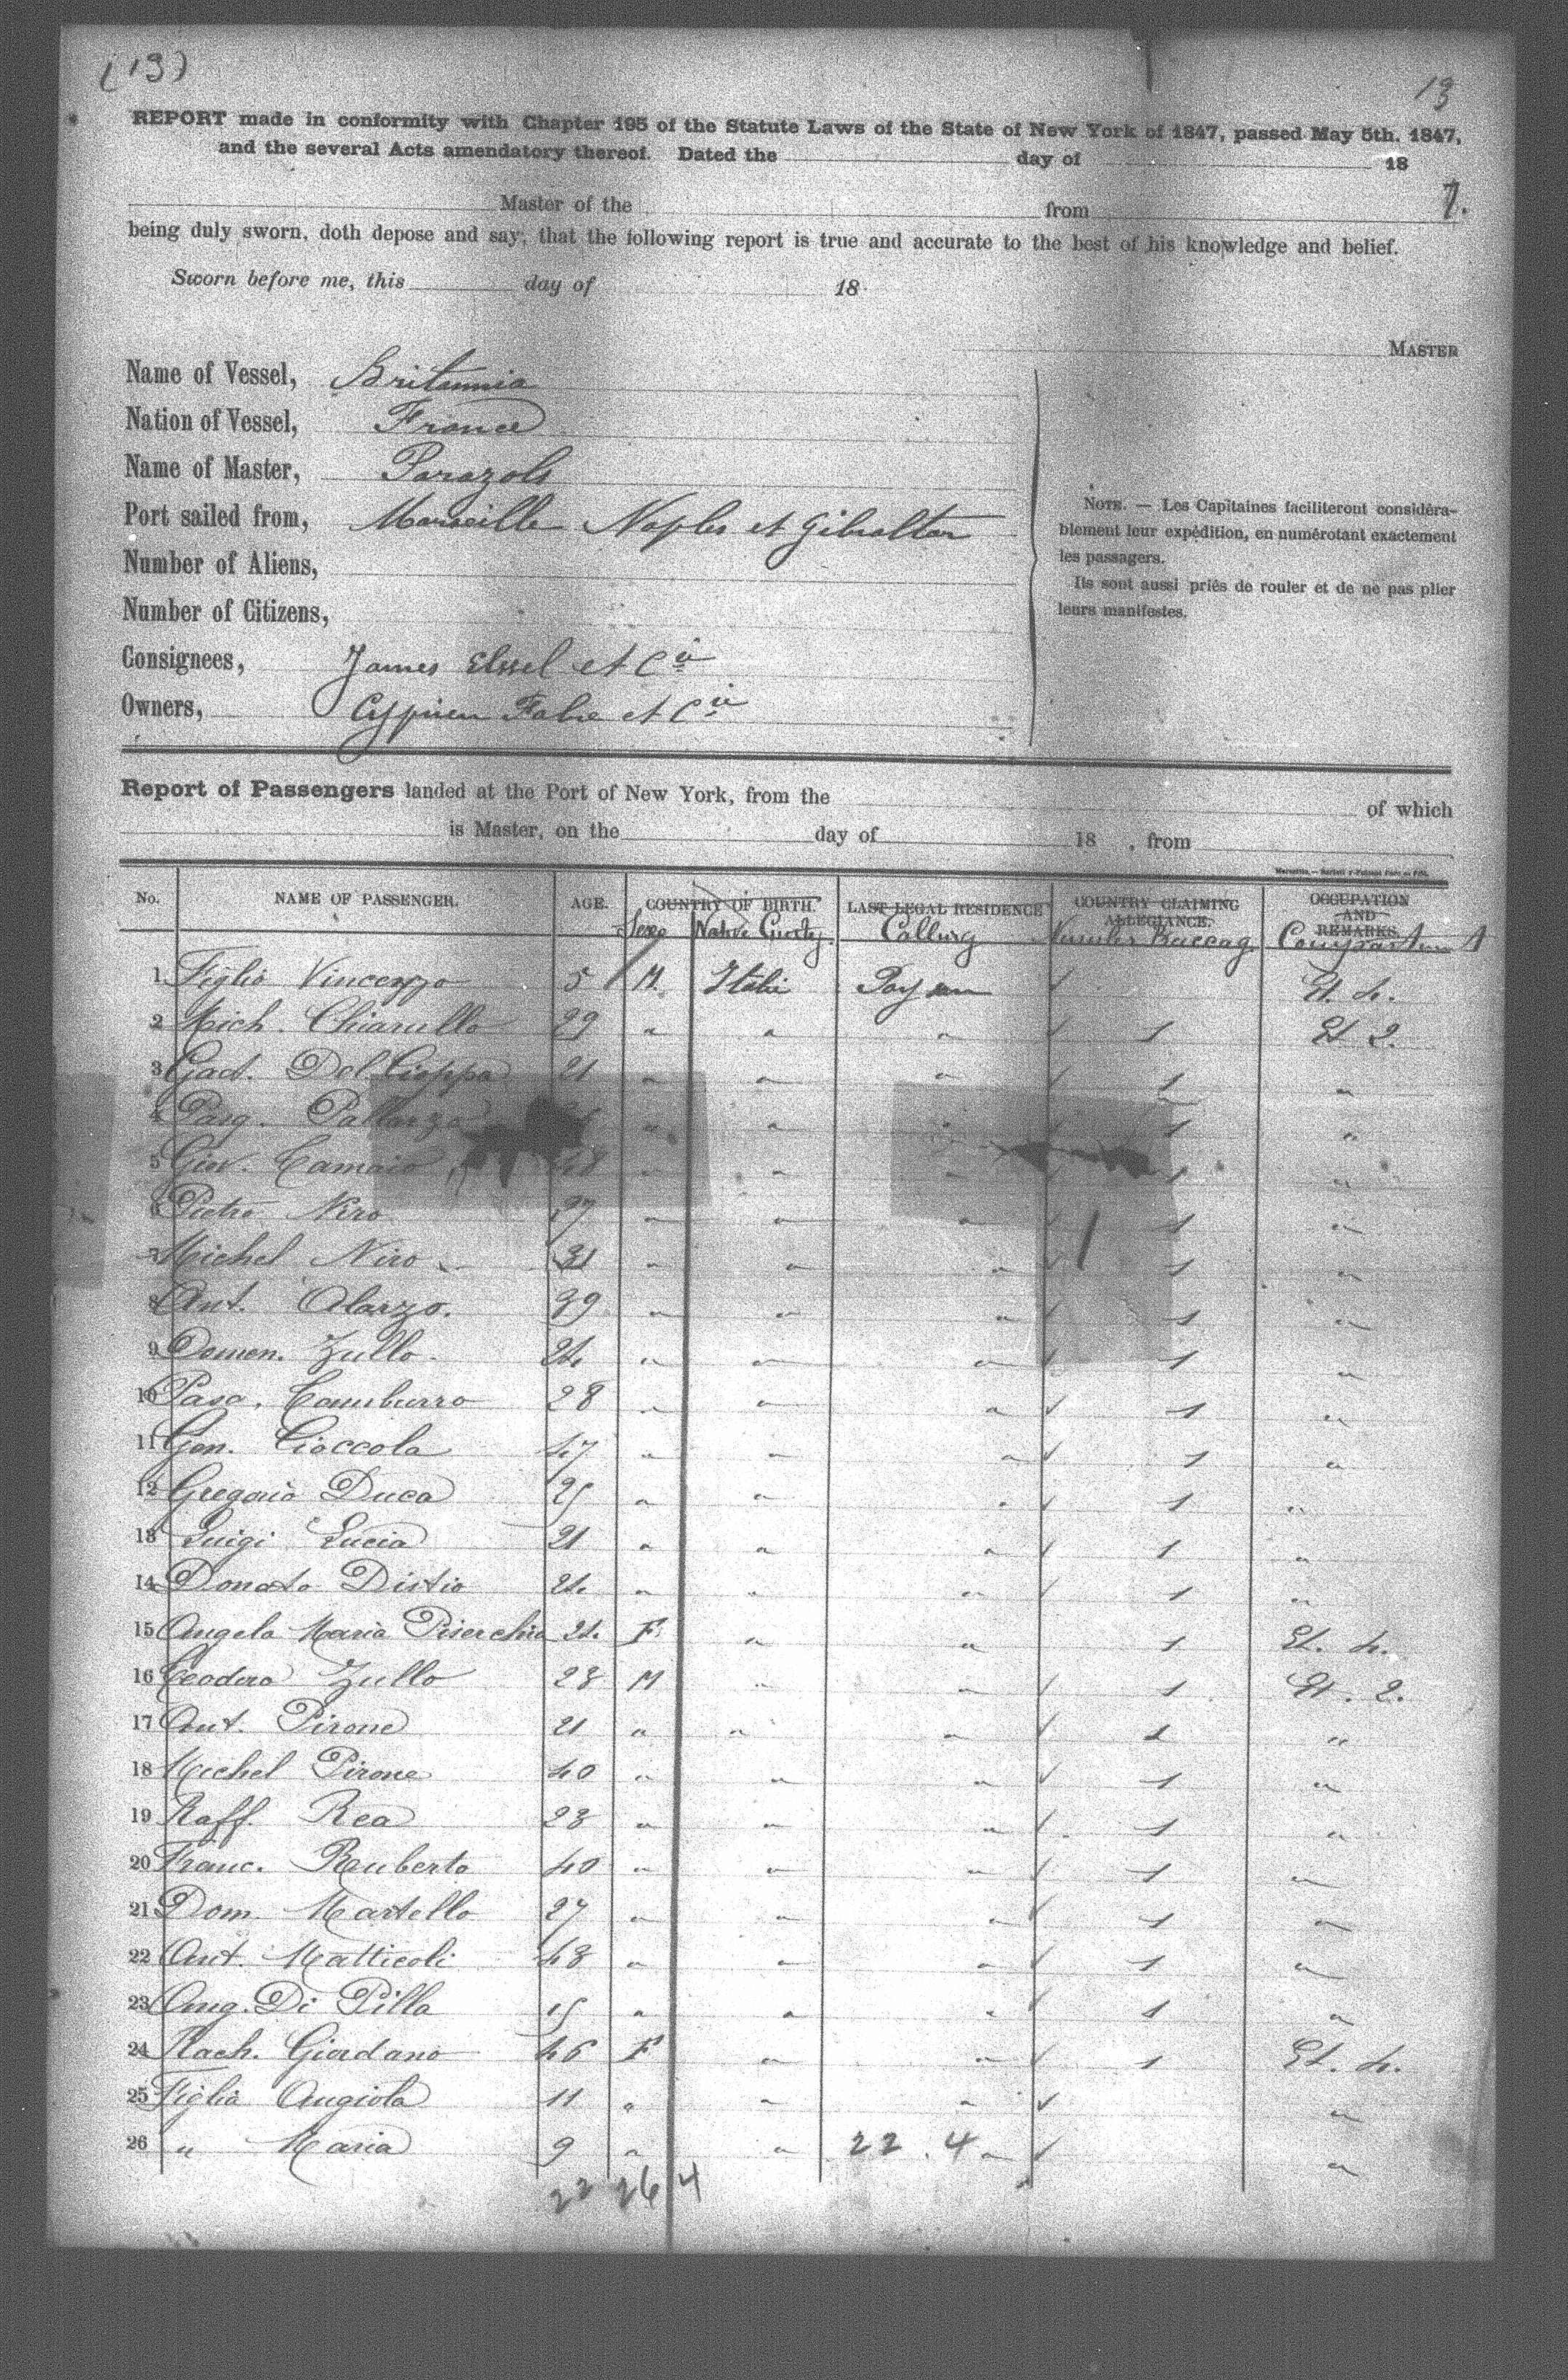 (13)
13
REPORT made in conformity with Chapter 195 of the Statute Laws of the State of New York of 1847, passed May 5th. 1847,
and the several Acts amendatory thereof. Dated the day of 18
Master of the from 7.
being duly sworn, doth depose and say, that the following report is true and accurate to the best of his knowledge and belief.
Sworn before me, this day of 18
MASTER
Name of Vessel, Britannia
Nation of Vessel, France
Name of Master, Parazols
Port sailed from, Marseille Naples et Gibraltar
Number of Aliens,
Number of Citizens,
Consignees, James Elwell et Cie
Owners, Cyprien Fabre et Cie
NOTE. — Les Capitaines faciliteront considéra-
blement leur expédition, en numérotant exactement
les passagers.
Ils sont aussi priés de rouler et de ne pas plier
leurs manifestes.
Report of Passengers landed at the Port of New York, from the of which
is Master, on the day of 18 , from
No. NAME OF PASSENGER. AGE. COUNTRY OF BIRTH. LAST LEGAL RESIDENCE COUNTRY CLAIMING ALLEGIANCE. OCCUPATION AND REMARKS.
Sexe Native Calling Number Baccag
1 Figlio Vincenzo 5 M. Italie Et. 4.
2 Mich. Chiarullo 29 " " " ✓ 1 Et 2.
3 Gaet. Del Cioppa 21 " " " ✓ 1 "
4 Pasq. " " 1 "
5 Giov. Camaio " " " 1 "
6 Pietro Niro 37 " " " ✓ 1 "
7 Michel Niro 31 " " " ✓ 1 "
8 Ant. Alarzo. 39 " " " ✓ 1 "
9 Domen. Zullo 24 " " " ✓ 1 "
10 Pasq. Camburro 28 " " " ✓ 1 "
11 Gen. Cioccola 47 " " " ✓ 1 "
12 Gregorio Duca 25 " " " ✓ 1 "
13 Luigi Lucia 21 " " " ✓ 1 "
14 Donato Distio 24 " " " ✓ 1 "
15 Angela Maria Piserchia 24. F " " 1 Et. 4.
16 Teodoro Zullo 28 M " " ✓ 1 Et. 2.
17 Ant. Pirone 21 " " " ✓ 1 "
18 Michel Pirone 40 " " " ✓ 1 "
19 Raff. Rea 28 " " " ✓ 1 "
20 Franc. Reuberto 40 " " " ✓ 1 "
21 Dom. Martello 27 " " " ✓ 1 "
22 Ant. Matticoli 48 " " " ✓ 1 "
23 Ang. Di Pilla 15 " " " ✓ 1 "
24 Rach. Giordano 46 F " " ✓ 1 Et. 4.
25 Figlia Angiola 11 " " " ✓ "
26 " Maria 9 " " 22 . 4 " ✓ "
22 26 4